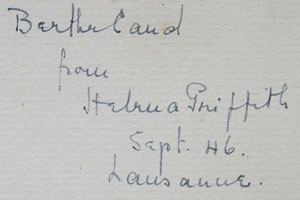 Berthe Cand
from
Helena Griffith
Sept. 46.
Lausanne.